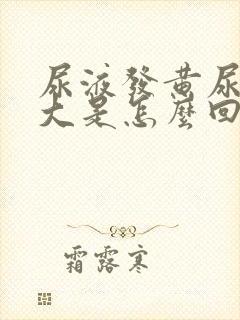 尿液發黃尿
大是怎麼回
霜露寒